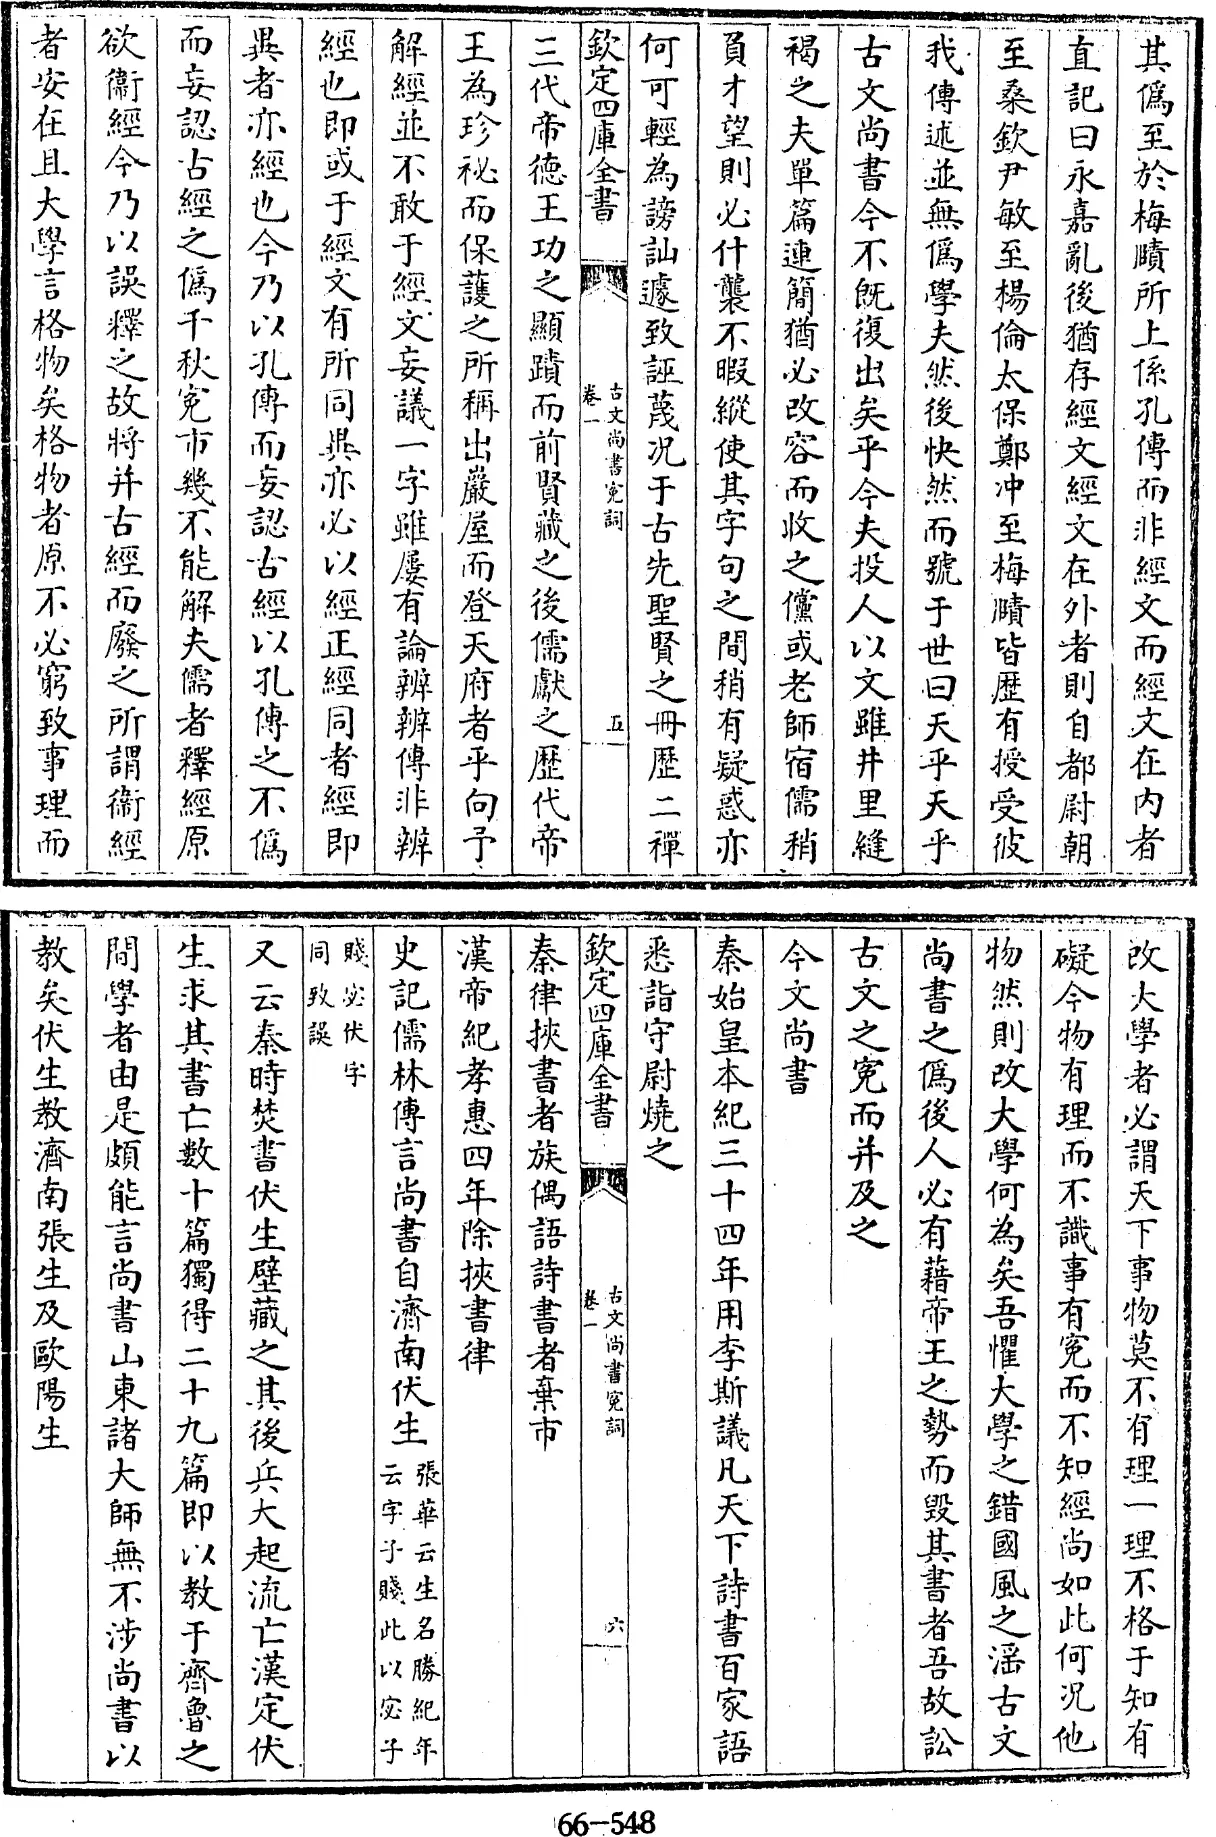 其僞至於梅賾所上係孔傳而非經文而經文在内者
直記曰永嘉亂後猶存經文經文在外者則自都尉朝
至桑欽尹敏至楊倫太保鄭冲至梅賾皆歷有授受彼
我傳述並無僞學夫然後快然而號于世曰天乎天乎
古文尚書今不既復出矣乎今夫投人以文雖井里縫
褐之夫單篇連簡猶必改容而收之儻或老師宿儒稍
負才望則必什襲不暇縱使其字句之間稍有疑惑亦
何可輕為謗訕遽致誣蔑况于古先聖賢之冊歷二禪
欽定四庫全書
古文尚書寃詞
卷一
五
三代帝德王功之顯蹟而前賢藏之後儒獻之歷代帝
王為珍秘而保護之所稱出巖屋而登天府者乎向予
解經並不敢于經文妄議一字雖屢有論辨辨傳非辨
經也即或于經文有所同異亦必以經正經同者經即
異者亦經也今乃以孔傳而妄認古經以孔傳之不僞
而妄認古經之僞千秋寃市幾不能解夫儒者釋經原
欲衞經今乃以誤釋之故將并古經而廢之所謂衞經
者安在且大學言格物矣格物者原不必窮致事理而
改大學者必謂天下事物莫不有理一理不格于知有
礙今物有理而不識事有寃而不知經尚如此何况他
物然則改大學何為矣吾懼大學之錯國風之淫古文
尚書之僞後人必有藉帝王之勢而毀其書者吾故訟
古文之寃而并及之
今文尚書
秦始皇本紀三十四年用李斯議凡天下詩書百家語
悉詣守尉燒之
欽定四庫全書
古文尚書寃詞
卷一
六
秦律挾書者族偶語詩書者棄市
漢帝紀孝惠四年除挾書律
史記儒林傳言尚書自濟南伏生
張華云生名勝紀年
云字子賤此以宓子
賤宓伏字
同致誤
又云秦時焚書伏生壁藏之其後兵大起流亡漢定伏
生求其書亡數十篇獨得二十九篇即以教于齊魯之
間學者由是頗能言尚書山東諸大師無不涉尚書以
教矣伏生教濟南張生及歐陽生
66-548